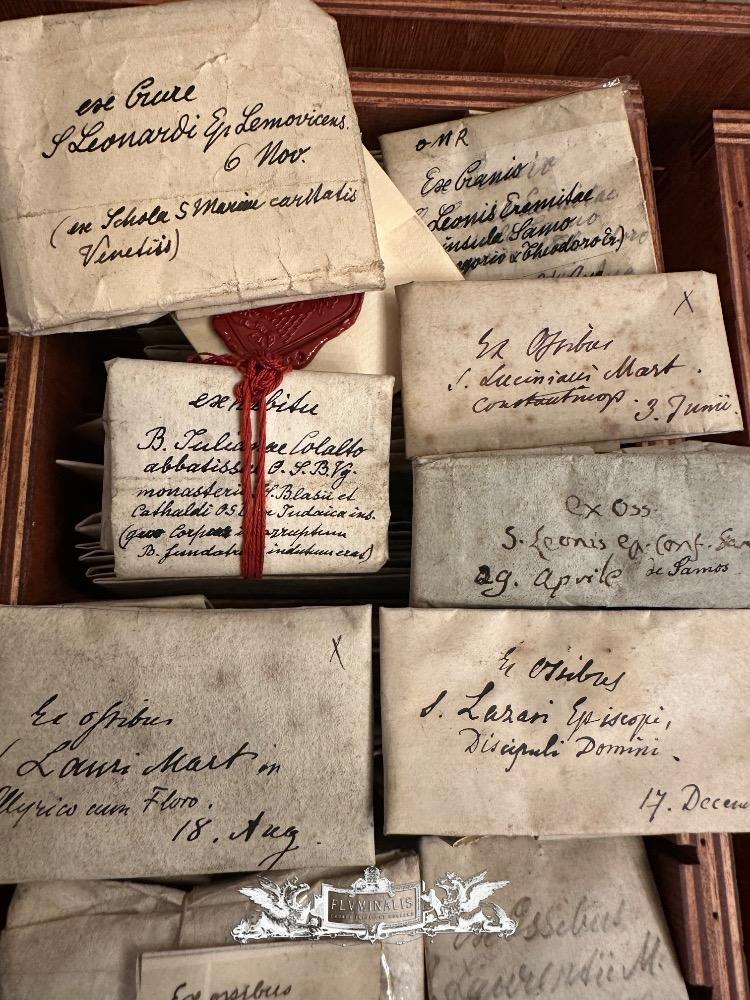 ex Crure
S Leonardi Ep Lemovicens.
6 Nov.
(ex Schola S Mariae caritatis
Venetiis)
OMR
Ex Cranio
Leonis Eremitae
insula Samo
Theodoro Er)
Ex Ossibus
S. Luciniani Mart.
Constantinop. 3. Junii.
X
ex habitu
B. Julianae Colalto
abbatissae O.S.B. Vg.
monasterii SS. Blasii et
Cathaldi Judaica ins.
(quo Corpus incorruptum
B. fundatricis indutum erat)
ex Oss.
S. Leonis ep. conf.
29. Aprile de Samos
X
Ex ossibus
Lauri Mart in
Illyrico cum Floro.
18. Aug.
Ex Ossibus
S. Lazari Episcopi,
Discipuli Domini.
17. Decem
FLVMINALIS
Ex ossibus
Ex Ossibus
Laurentii M.